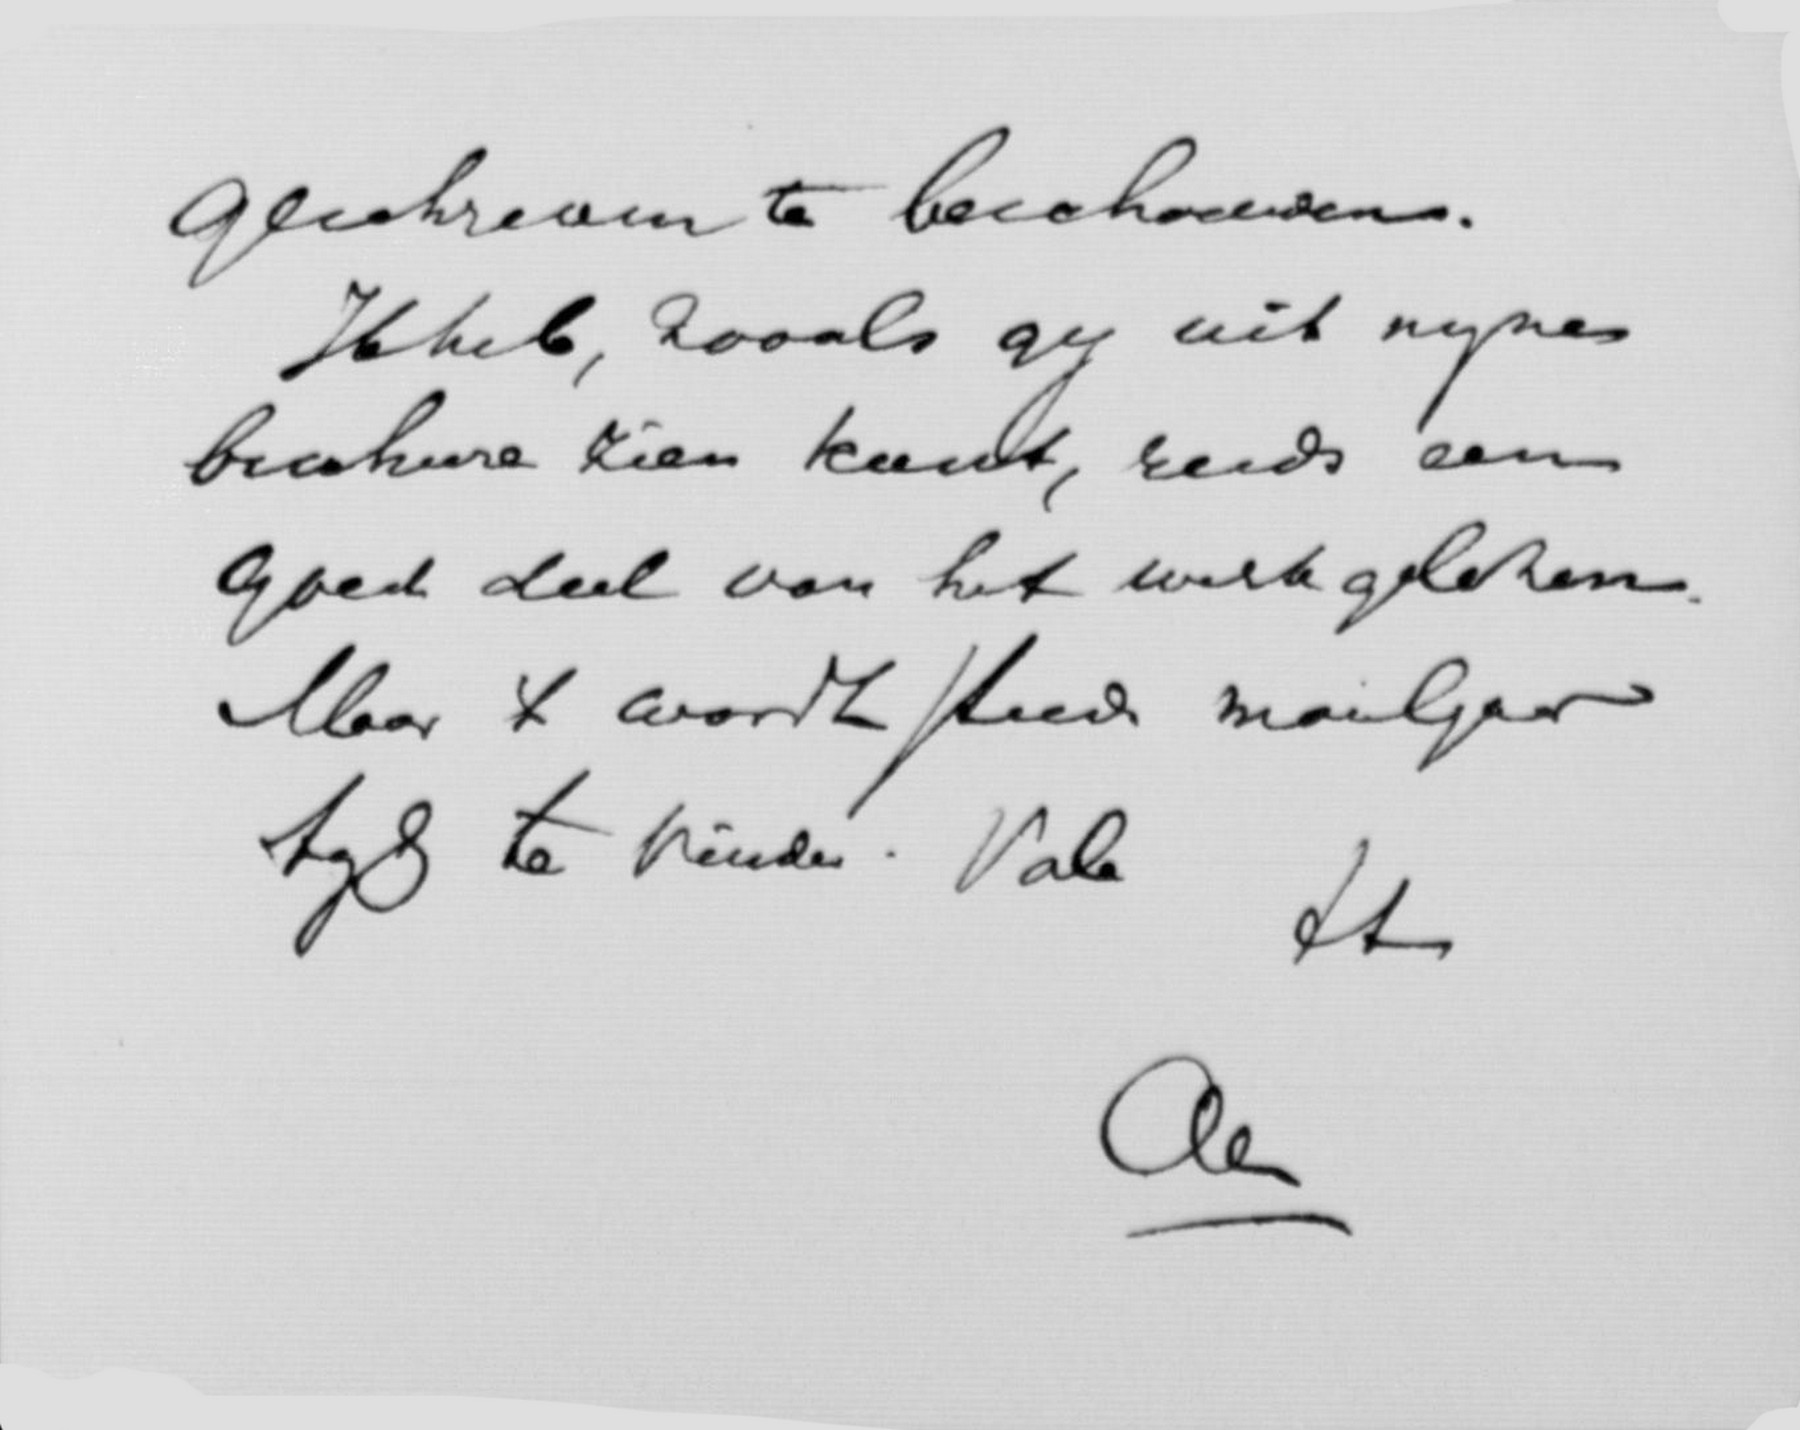 geschreven te beschouwen.
Ik heb, zooals gy uit myne
brochure zien kunt, reeds een
goed deel van het werk gelezen.
Maar t wordt steeds moeilyker
tyd te vinden. Vale